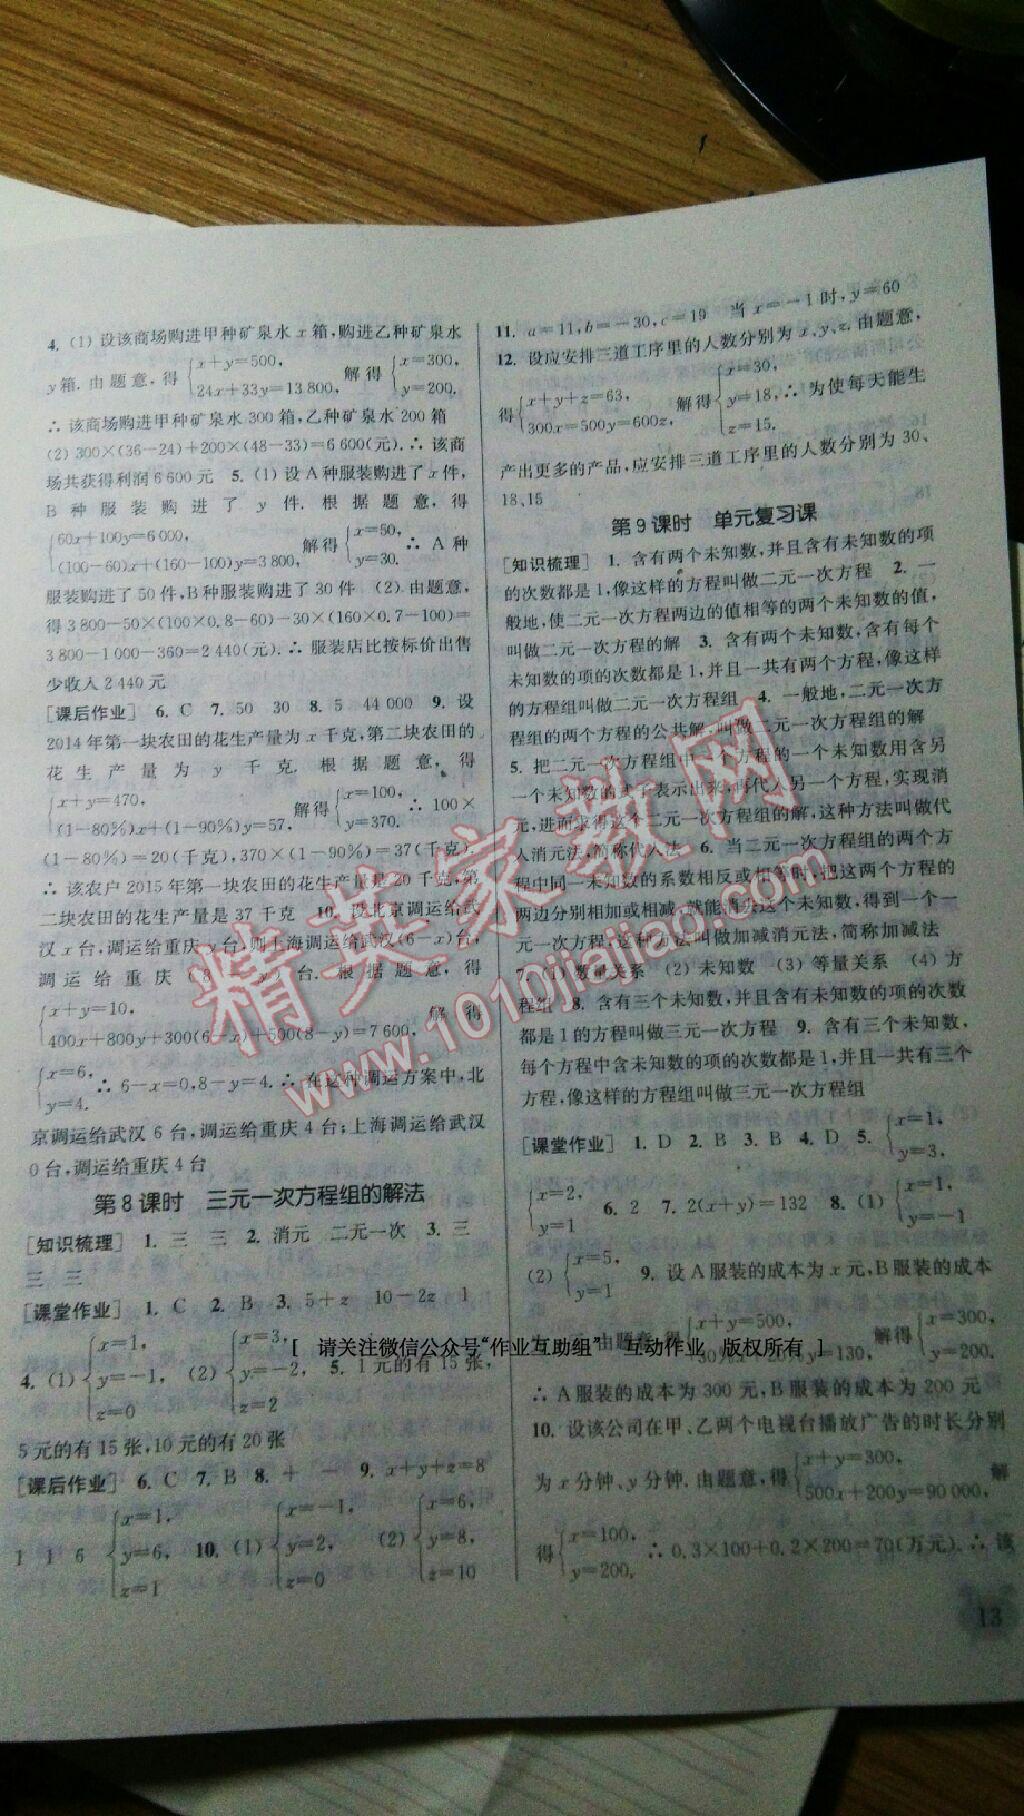 4. (1) 设该商场购进甲种矿泉水 x 箱,购进乙种矿泉水
y箱. 由题意, 得{x+y=500, 24x+33y=13 800, 解得{x=300, y=200.
∴ 该商场购进甲种矿泉水 300 箱,乙种矿泉水 200 箱
(2) 300×(36-24)+200×(48-33)=6 600(元).∴ 该商
场共获得利润 6 600 元 5. (1) 设 A 种服装购进了 x 件,
B 种服装购进了 y 件. 根据题意, 得
{60x+100y=6 000, (100-60)x+(160-100)y=3 800, 解得{x=50, y=30. ∴ A 种
服装购进了 50 件,B 种服装购进了 30 件 (2) 由题意,
得 3 800-50×(100×0.8-60)-30×(160×0.7-100)=
3 800-1 000-360=2 440(元).∴ 服装店比按标价出售
少收入 2 440 元
[课后作业] 6. C 7. 50 30 8. 5 44 000 9. 设
2014 年第一块农田的花生产量为 x 千克,第二块农田的
花生产量为 y 千克. 根据题意, 得
{x+y=470, (1-80%)x+(1-90%)y=57, 解得{x=100, y=370. ∴ 100×
(1-80%)=20(千克),370×(1-90%)=37(千克).
∴ 该农户 2015 年第一块农田的花生产量是 20 千克,第
二块农田的花生产量是 37 千克 10. 设北京调运给武
汉 x 台,调运给重庆 y 台,则上海调运给武汉(6-x)台,
调运给重庆(8-y)台. 根据题意, 得
{x+y=10, 400x+800y+300(6-x)+500(8-y)=7 600, 解得
{x=6, y=4. ∴ 6-x=0,8-y=4.∴ 在这种调运方案中,北
京调运给武汉 6 台,调运给重庆 4 台;上海调运给武汉
0 台,调运给重庆 4 台
第 8 课时 三元一次方程组的解法
[知识梳理] 1. 三 三 2. 消元 二元一次 3. 三
三 三
[课堂作业] 1. C 2. B 3. 5+z 10-2z 1
4. (1) {x=1, y=-1, z=0 (2) {x=3, y=-2, z=2 5. 1 元的有 15 张,
5 元的有 15 张,10 元的有 20 张
[课后作业] 6. C 7. B 8. + - 9. x+y+z=8
1 1 6 {x=1, y=6, z=1 10. (1) {x=-1, y=2, z=0 (2) {x=6, y=8, z=10
11. a=11,b=-30,c=19 当 x=-1 时,y=60
12. 设应安排三道工序里的人数分别为 x、y、z. 由题意,
得{x+y+z=63, 300x=500y=600z, 解得{x=30, y=18, z=15. ∴ 为使每天能生
产出更多的产品,应安排三道工序里的人数分别为 30、
18、15
第 9 课时 单元复习课
[知识梳理] 1. 含有两个未知数,并且含有未知数的项
的次数都是 1,像这样的方程叫做二元一次方程 2. 一
般地,使二元一次方程两边的值相等的两个未知数的值,
叫做二元一次方程的解 3. 含有两个未知数,含有每个
未知数的项的次数都是 1,并且一共有两个方程,像这样
的方程组叫做二元一次方程组 4. 一般地,二元一次方
程组的两个方程的公共解,叫做二元一次方程组的解
5. 把二元一次方程组中一个方程的一个未知数用含另
一个未知数的式子表示出来,再代入另一个方程,实现消
元,进而求得这个二元一次方程组的解,这种方法叫做代
入消元法,简称代入法 6. 当二元一次方程组的两个方
程中同一未知数的系数相反或相等时,把这两个方程的
两边分别相加或相减,就能消去这个未知数,得到一个一
元一次方程,这种方法叫做加减消元法,简称加减法
7. (1) 数量关系 (2) 未知数 (3) 等量关系 (4) 方
程组 8. 含有三个未知数,并且含有未知数的项的次数
都是 1 的方程叫做三元一次方程 9. 含有三个未知数,
每个方程中含未知数的项的次数都是 1,并且一共有三个
方程,像这样的方程组叫做三元一次方程组
[课堂作业] 1. D 2. B 3. B 4. D 5. {x=1, y=3,
{x=2, y=1 6. 2 7. 2(x+y)=132 8. (1) {x=1, y=-1
(2) {x=5, y=1 9. 设 A 服装的成本为 x 元,B 服装的成本
由题意,得{x+y=500, 30%x+20%y=130, 解得{x=300, y=200.
∴ A 服装的成本为 300 元,B 服装的成本为 200 元
10. 设该公司在甲、乙两个电视台播放广告的时长分别
为 x 分钟、y 分钟. 由题意,得{x+y=300, 500x+200y=90 000, 解
得{x=100, y=200. ∴ 0.3×100+0.2×200=70(万元).∴ 该
[ 请关注微信公众号“作业互助组” 互动作业 版权所有 ]
13
精英家教网
www.1010jiajiao.com